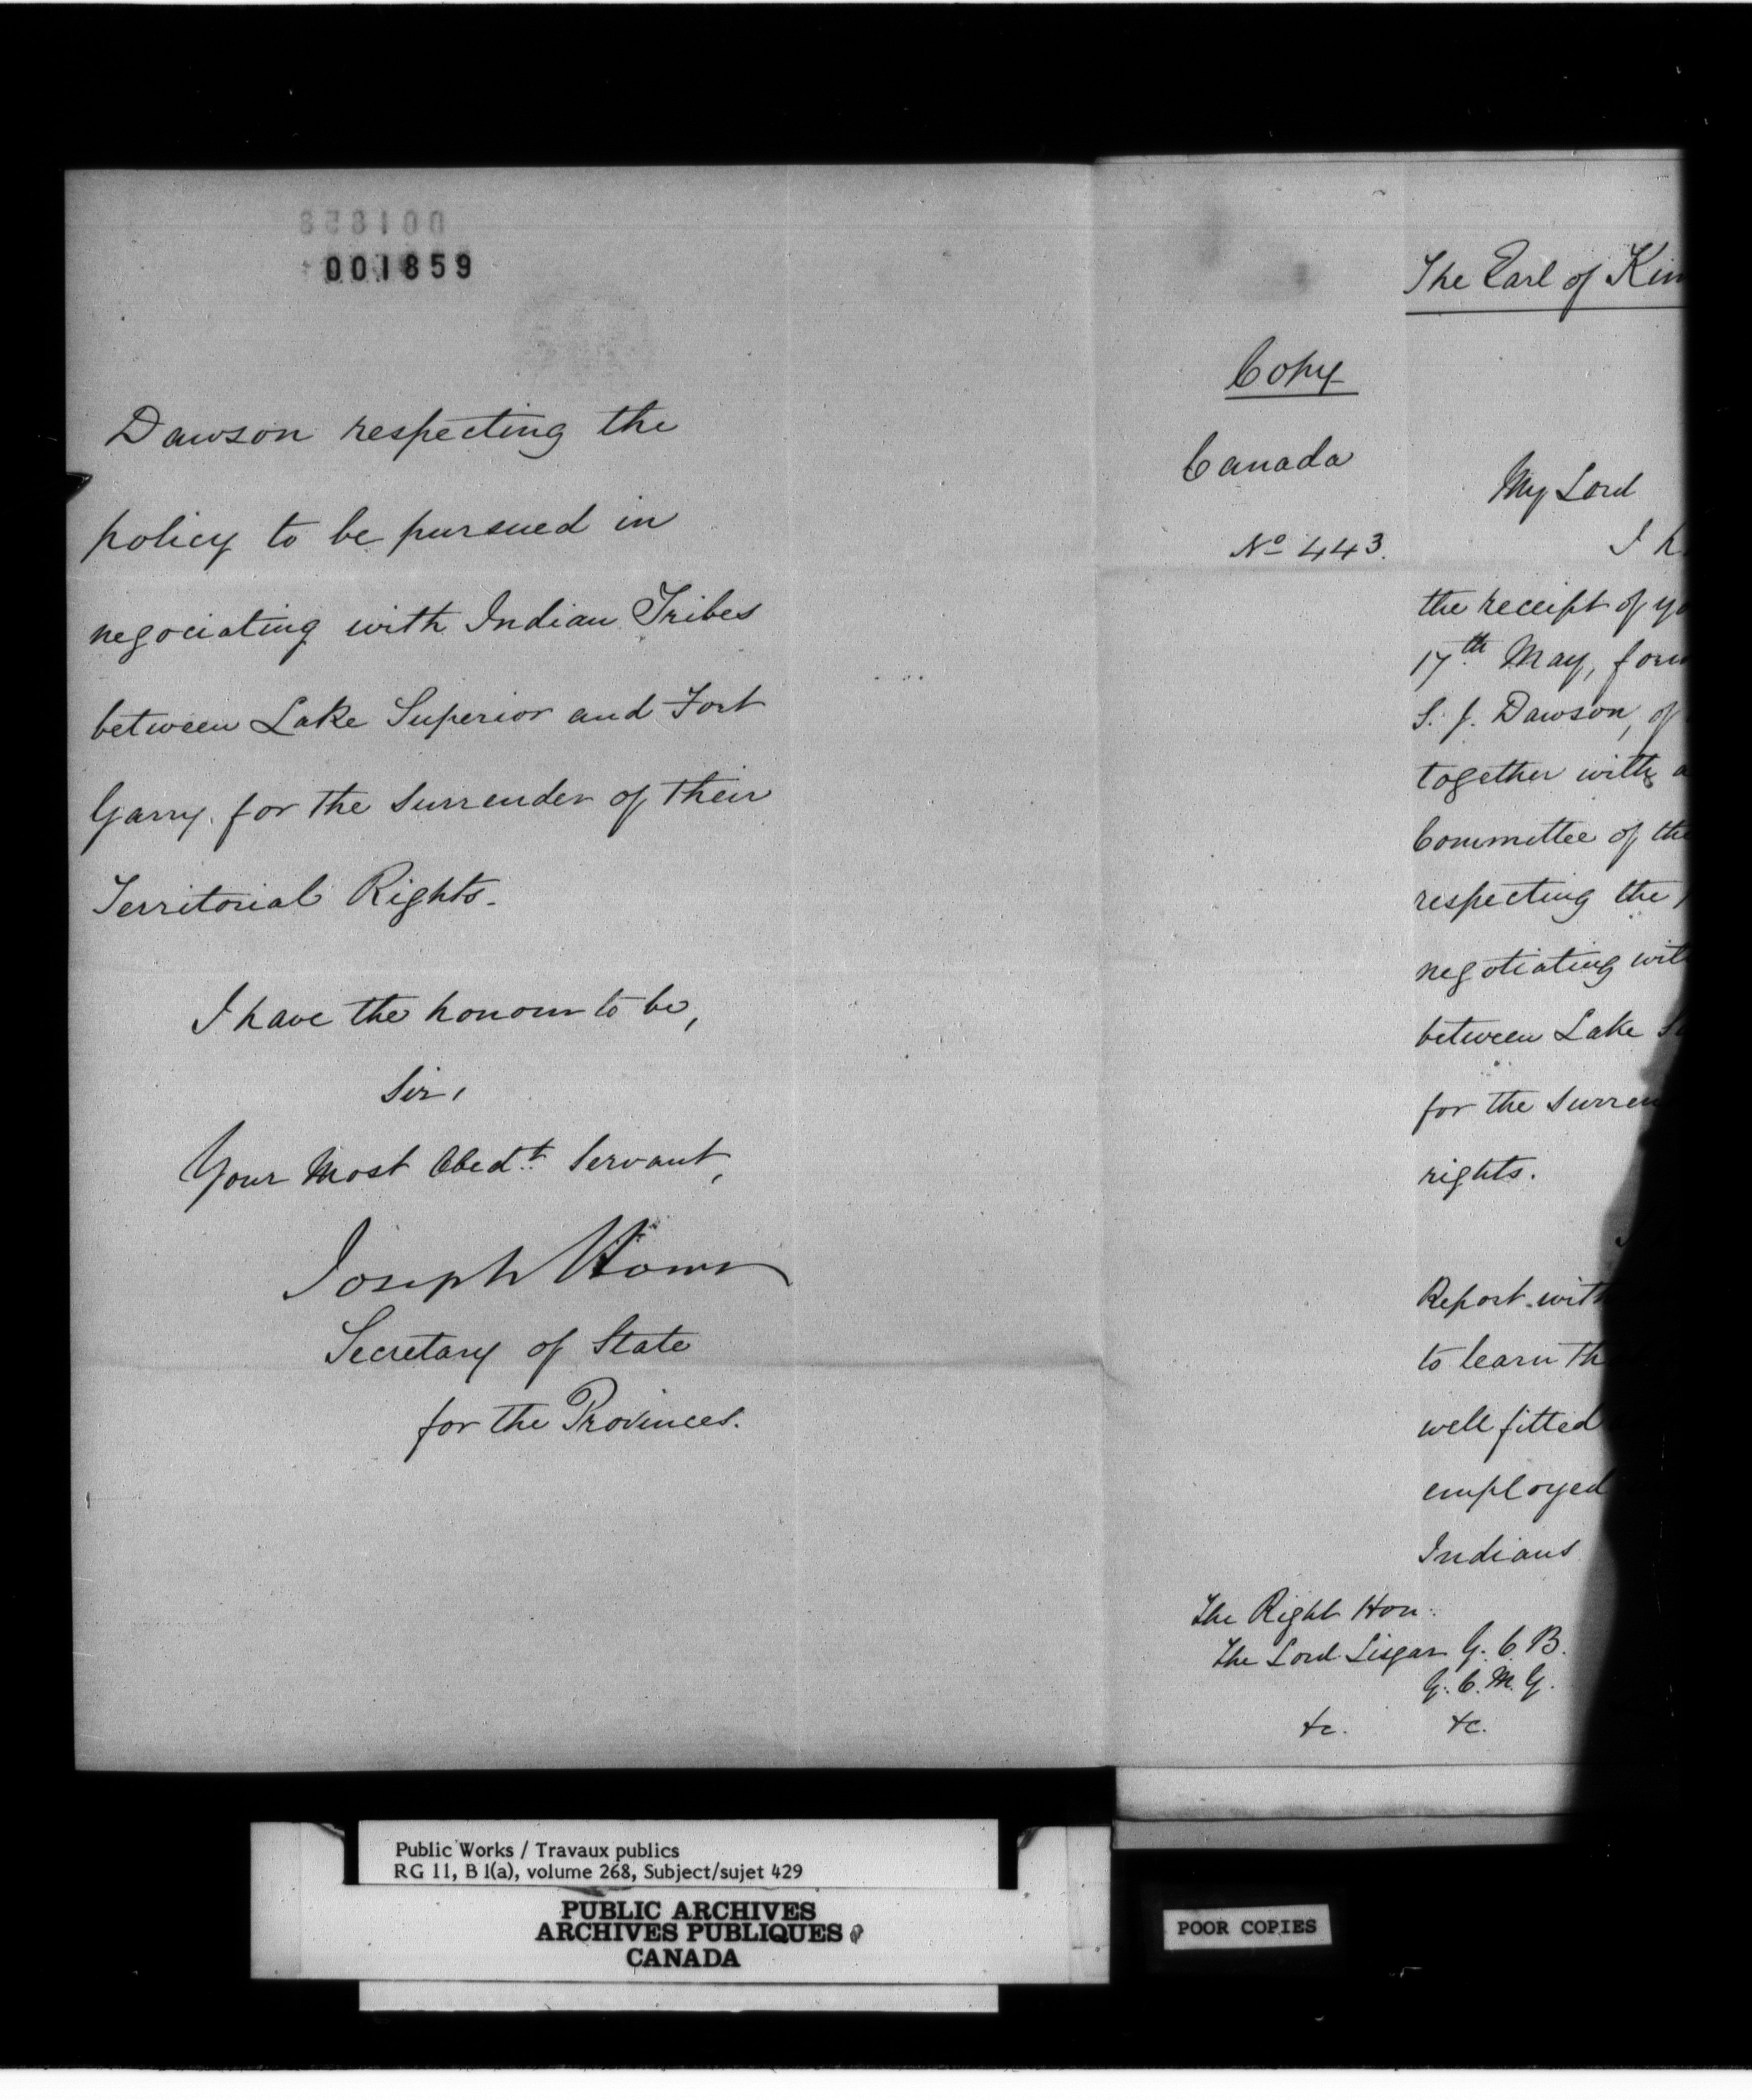 001858
001859
Dawson respecting the
policy to be pursued in
negociating with Indian Tribes
between Lake Superior and Fort
Garry, for the surrender of their
Territorial Rights.
I have the honour to be,
Sir,
Your Most Obedt. Servant,
Joseph Howe
Secretary of State
for the Provinces.
The Earl of Kim
Copy
Canada
No 443.
My Lord
I h
the receipt of yo
17th May, forw
S. J. Dawson, of
together with a
Committee of the
respecting the
negotiating with
between Lake Su
for the surren
rights.
Report with
to learn th
well fitted
employed
Indians
The Right Hon:
The Lord Lisgar G. C. B.
G. C. M. G.
&c. &c.
Public Works / Travaux publics
RG 11, B 1(a), volume 268, Subject/sujet 429
PUBLIC ARCHIVES
ARCHIVES PUBLIQUES
CANADA
POOR COPIES